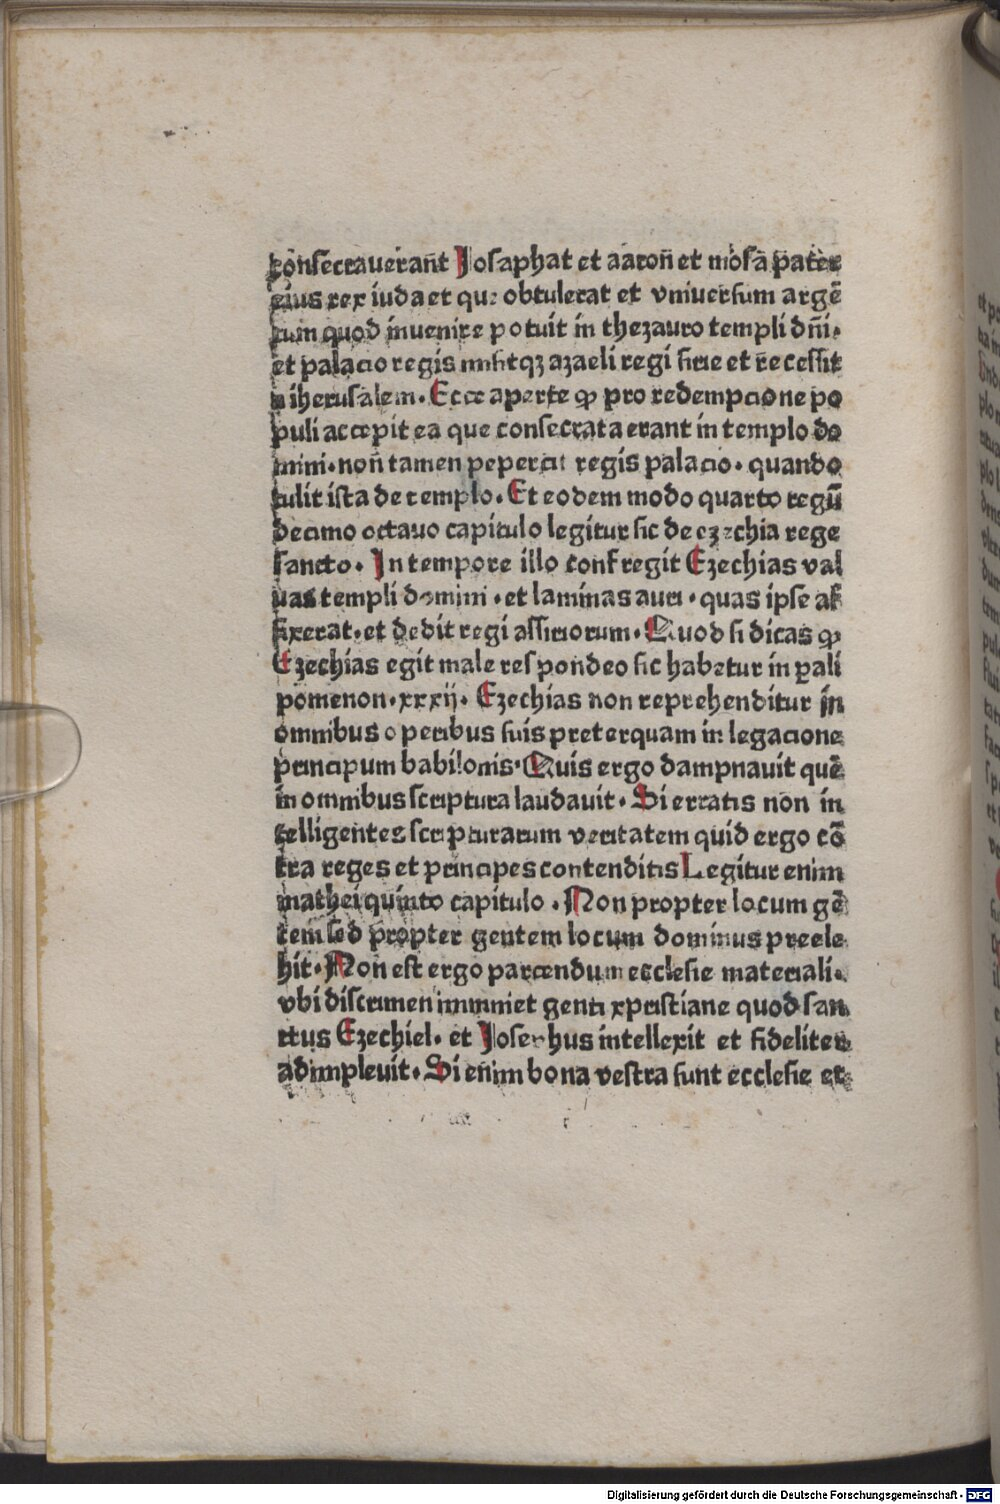 consecraverañt Josaphat et aaroñ et mosā p̄ater
eius rex iuda et que obtulerat et vniuersum argē
tum quod invenire potuit in thezauro templi dñi·
et palacio regis misitqꝫ azaeli regi sirie et recessit
a iherusalem· Ecce aperte ꝙ pro redempcione po
puli accepit ea que consecrata erant in templo do
mini· non tamen pepercit regis palacio· quando
tulit ista de templo· Et eodem modo quarto regū
decimo octauo capitulo legitur sic de ezechia rege
sancto· In tempore illo confregit Ezechias val
uas templi domini· et laminas auri· quas ipse af
fixerat· et dedit regi assiriorum· Quod si dicas ꝙ
Ezechias egit male respondeo sic habetur in ꝑali
pomenon· xxxij· Ezechias non reprehenditur in
omnibus operibus suis preterquam in legacione
principum babilonis· Quis ergo dampnauit quē
in omnibus scriptura laudavit· Si erratis non in
telligentes scripturarum veritatem quid ergo cō
tra reges et principes contenditis Legitur enim
mathei quinto capitulo· Non propter locum gē
tem sed propter gentem locum dominus preele
hit· Non est ergo parcendum ecclesie materiali·
vbi discrimen imminet genti xpristiane quod san
ctus Ezechiel· et Josephus intellexit et fideliter
adimplevit· Si enim bona vestra sunt ecclesie et
Digitalisierung gefördert durch die Deutsche Forschungsgemeinschaft - DFG